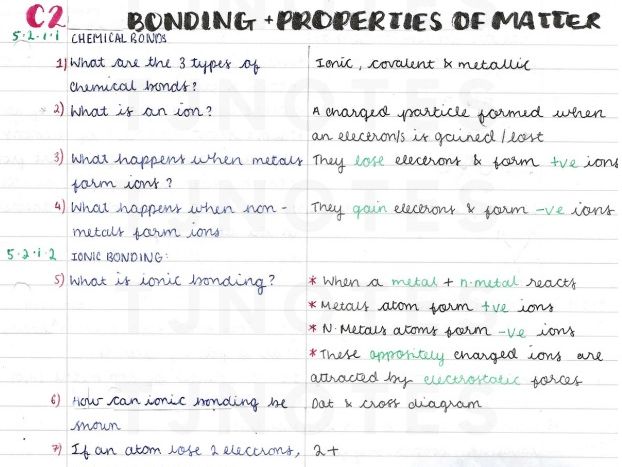 C2 BONDING + PROPERTIES OF MATTER
5.2.1.1 CHEMICAL BONDS
1) What are the 3 types of Ionic, covalent & metallic
chemical bonds?
2) What is an ion? A charged particle formed when
an electron/s is gained / lost
3) What happens when metals They lose electrons & form +ve ions
form ions?
4) What happens when non- They gain electrons & form -ve ions
metals form ions
5.2.1.2 IONIC BONDING:
5) What is ionic bonding? * When a metal + n.metal reacts
* Metals atom form +ve ions
* N.Metals atoms form -ve ions
* These oppositely charged ions are
attracted by electrostatic forces
6) How can ionic bonding be Dot & cross diagram
shown
7) If an atom lose 2 electrons, 2+
TJNOTES
TJNOTES
TJNOTES